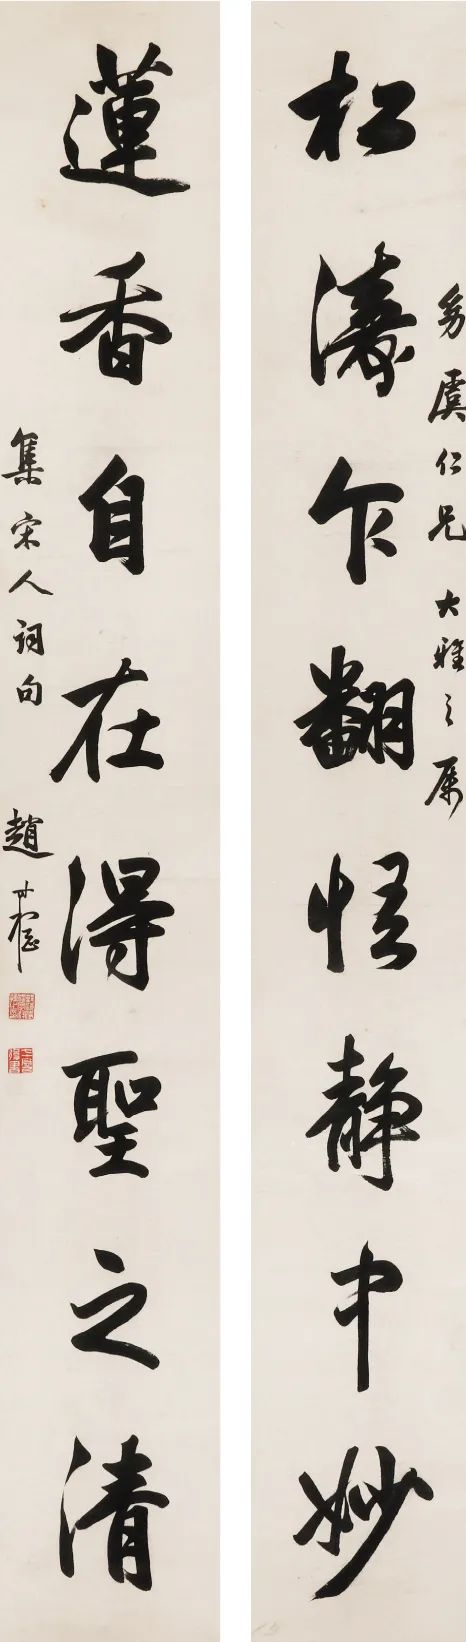 虞仁兄大雅之属
松濤乍翻悟静中妙
蓮香自在得聖之清
集宋人詞句 趙时棡